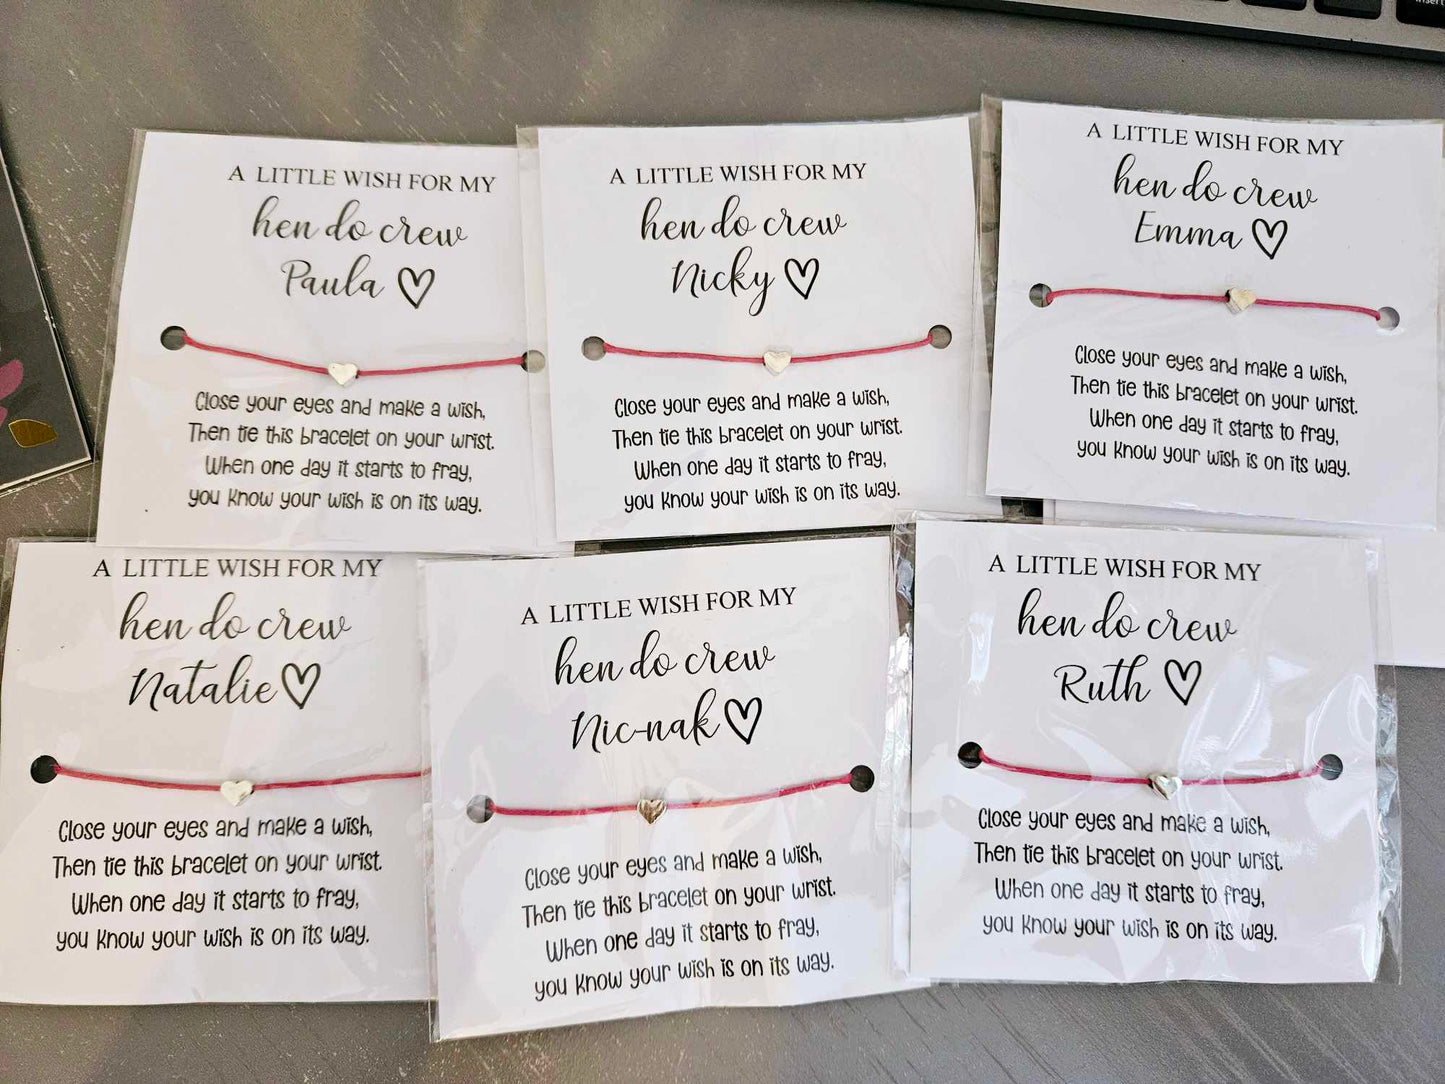 A LITTLE WISH FOR MY
hen do crew
Paula
Close your eyes and make a wish,
Then tie this bracelet on your wrist.
When one day it starts to fray,
you know your wish is on its way.
A LITTLE WISH FOR MY
hen do crew
Nicky
Close your eyes and make a wish,
Then tie this bracelet on your wrist.
When one day it starts to fray,
you know your wish is on its way.
A LITTLE WISH FOR MY
hen do crew
Emma
Close your eyes and make a wish,
Then tie this bracelet on your wrist.
When one day it starts to fray,
you know your wish is on its way.
A LITTLE WISH FOR MY
hen do crew
Natalie
Close your eyes and make a wish,
Then tie this bracelet on your wrist.
When one day it starts to fray,
you know your wish is on its way.
A LITTLE WISH FOR MY
hen do crew
Nic-nak
Close your eyes and make a wish,
Then tie this bracelet on your wrist.
When one day it starts to fray,
you know your wish is on its way.
A LITTLE WISH FOR MY
hen do crew
Ruth
Close your eyes and make a wish,
Then tie this bracelet on your wrist.
When one day it starts to fray,
you know your wish is on its way.
Insert